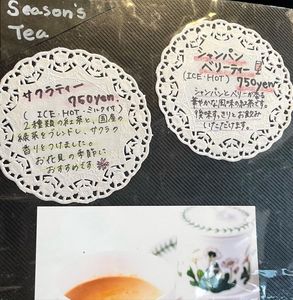 Season's
Tea
サクラティー
750yen.
( ICE・HOT・ミルクティ可 )
2種類の紅茶と、国産の
緑茶をブレンドし、サクラの
香りをつけました。
お花見の季節に
おすすめです
シャンパン
ベリーティー
(ICE・HOT) 750yen!
シャンパンとベリーが香る
華やかな風味の紅茶です。
後味すっきりとお飲み
いただけます。